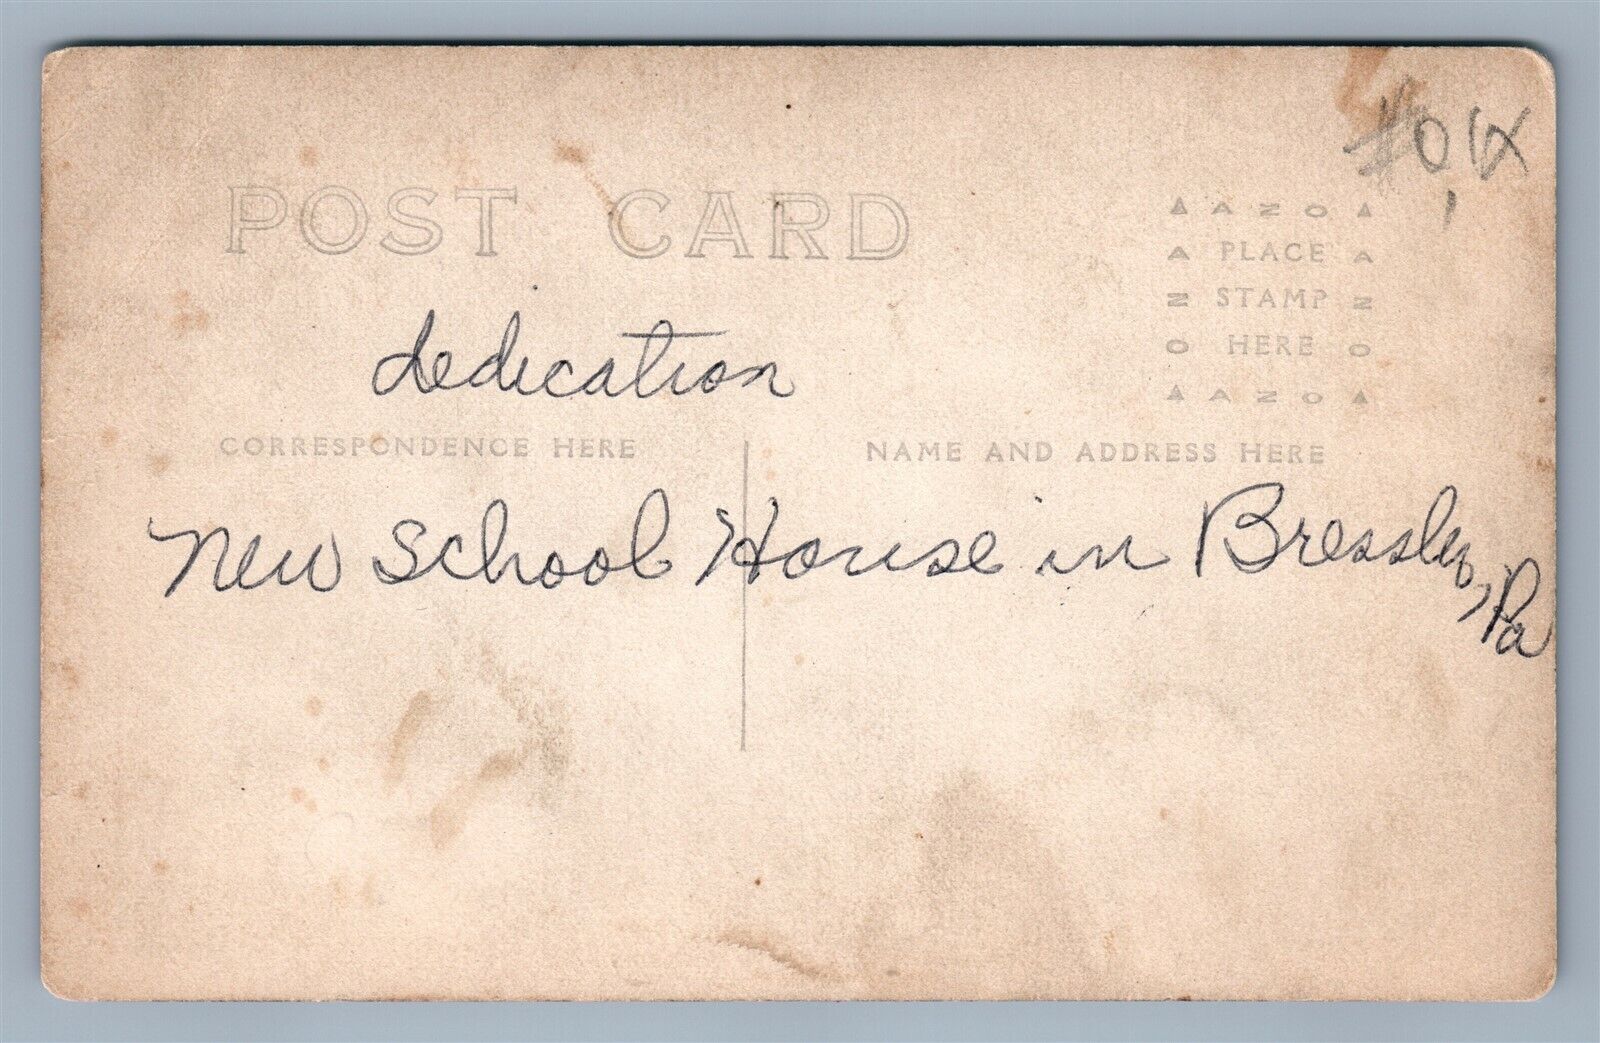 POST CARD
▲ A Z O ▲
A PLACE A
Z STAMP Z
O HERE O
▲ A Z O ▲
dedication
CORRESPONDENCE HERE
NAME AND ADDRESS HERE
New School House in Bressler, Pa